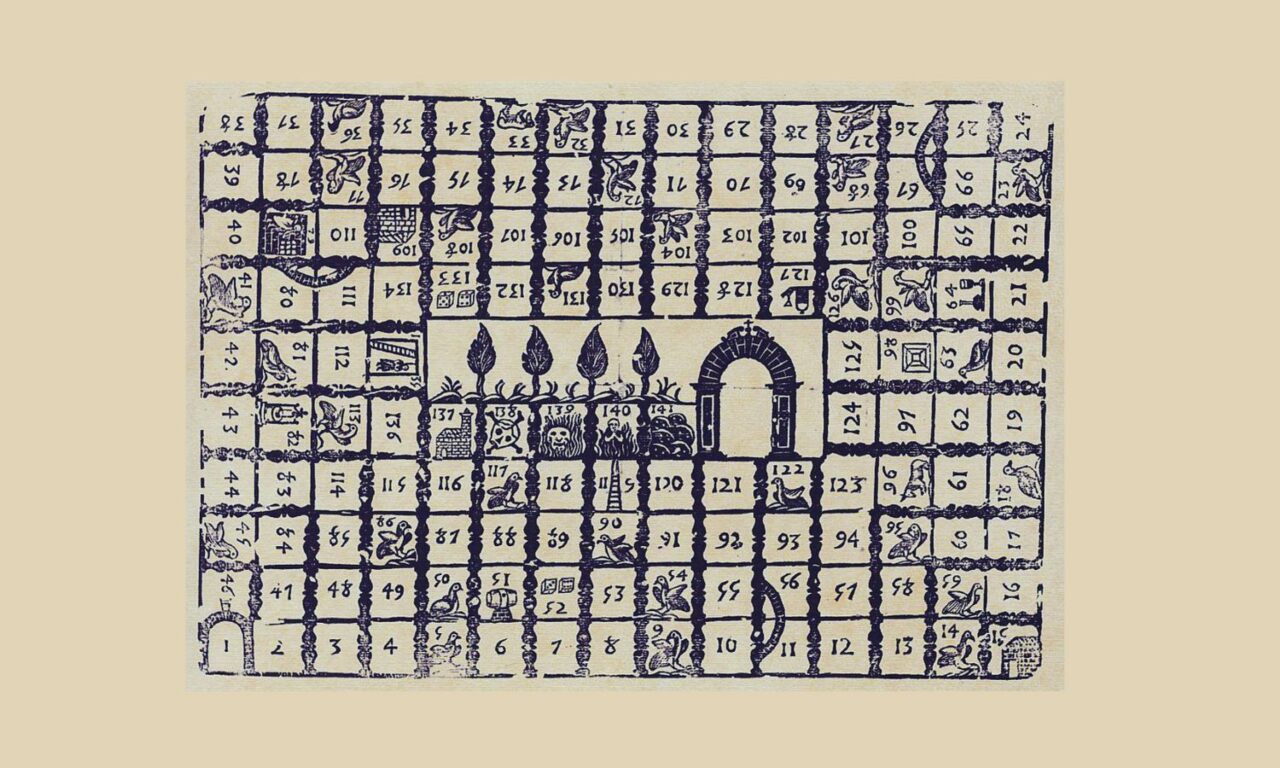 38 37 36 35 34 33 32 31 30 29 28 27 26 25 24
39 78 77 76 75 74 73 72 71 70 69 68 67 66 23
40 110 109 108 107 106 105 104 103 102 101 100 65 22
41 80 111 134 133 132 131 130 129 128 127 126 99 64 21
42 81 112 125 98 63 20
43 82 113 136 137 138 139 140 141 124 97 62 19
44 83 114 115 116 117 118 119 120 121 122 123 96 61 18
45 84 85 86 87 88 89 90 91 92 93 94 95 60 17
46 47 48 49 50 51 52 53 54 55 56 57 58 59 16
1 2 3 4 5 6 7 8 9 10 11 12 13 14 15